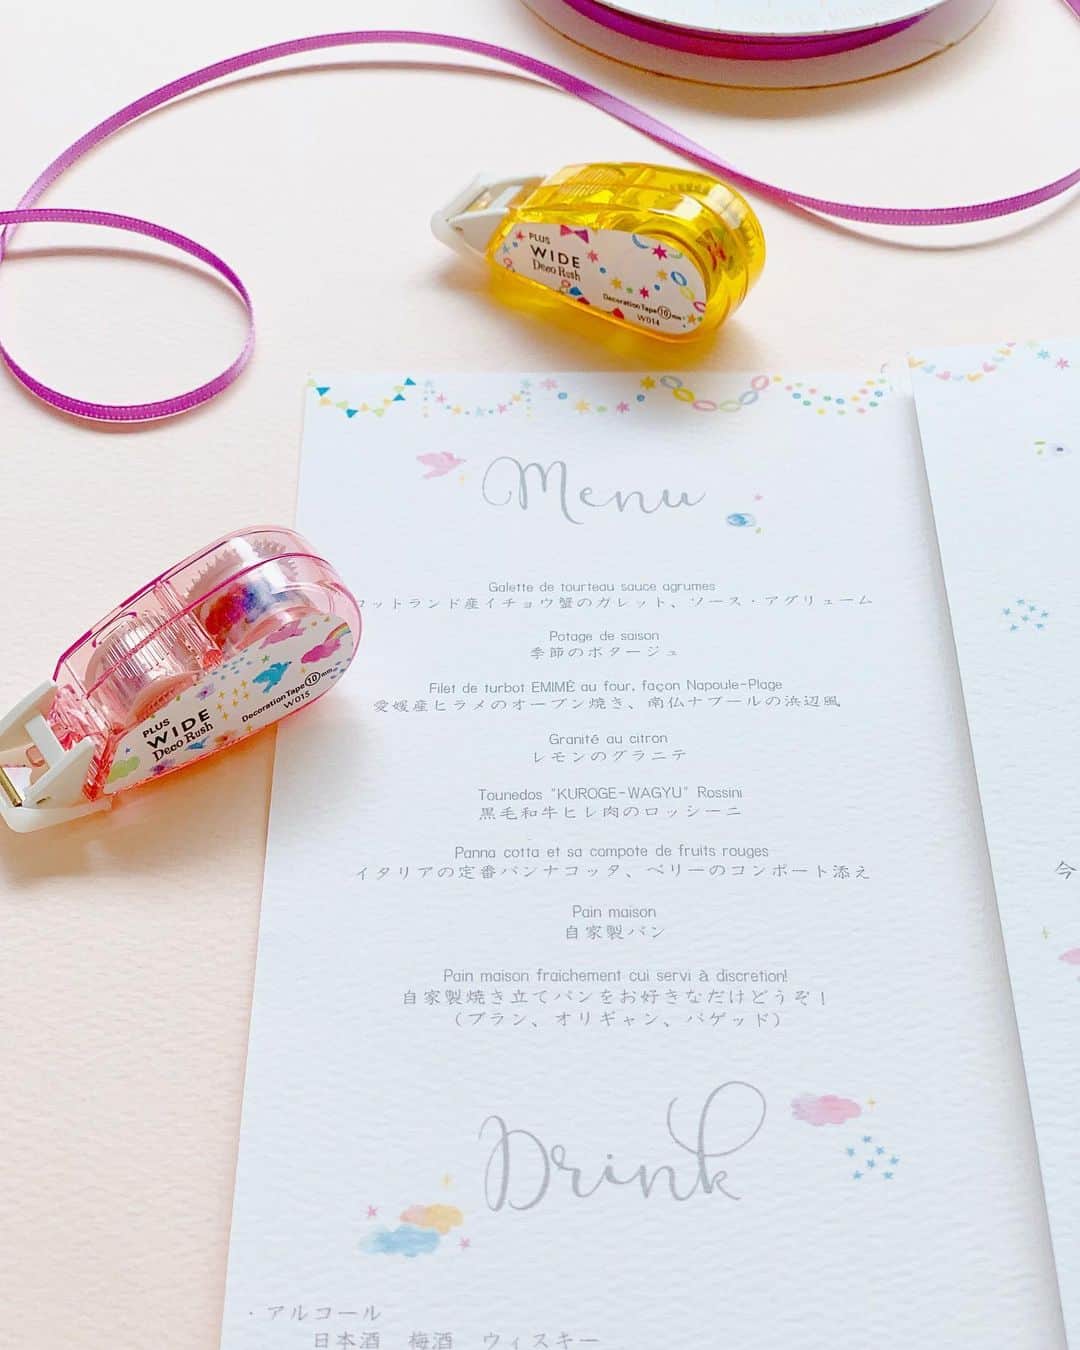 PLUS
WIDE
Deco Rush
Decoration Tape 10mm
W014
Menu
Galette de tourteau sauce agrumes
ットランド産イチョウ蟹のガレット、ソース・アグリューム
Potage de saison
季節のポタージュ
Filet de turbot EMIMÉ au four, façon Napoule-Plage
愛媛産ヒラメのオーブン焼き、南仏ナプールの浜辺風
Granité au citron
レモンのグラニテ
Tounedos "KUROGE-WAGYU" Rossini
黒毛和牛ヒレ肉のロッシーニ
Panna cotta et sa compote de fruits rouges
イタリアの定番パンナコッタ、ベリーのコンポート添え
Pain maison
自家製パン
Pain maison fraichement cui servi à discretion!
自家製焼き立てパンをお好きなだけどうぞ！
（ブラン、オリギャン、バゲッド）
PLUS
WIDE
Deco Rush
Decoration Tape 10mm
W015
Drink
・アルコール
日本酒　梅酒　ウィスキー
今